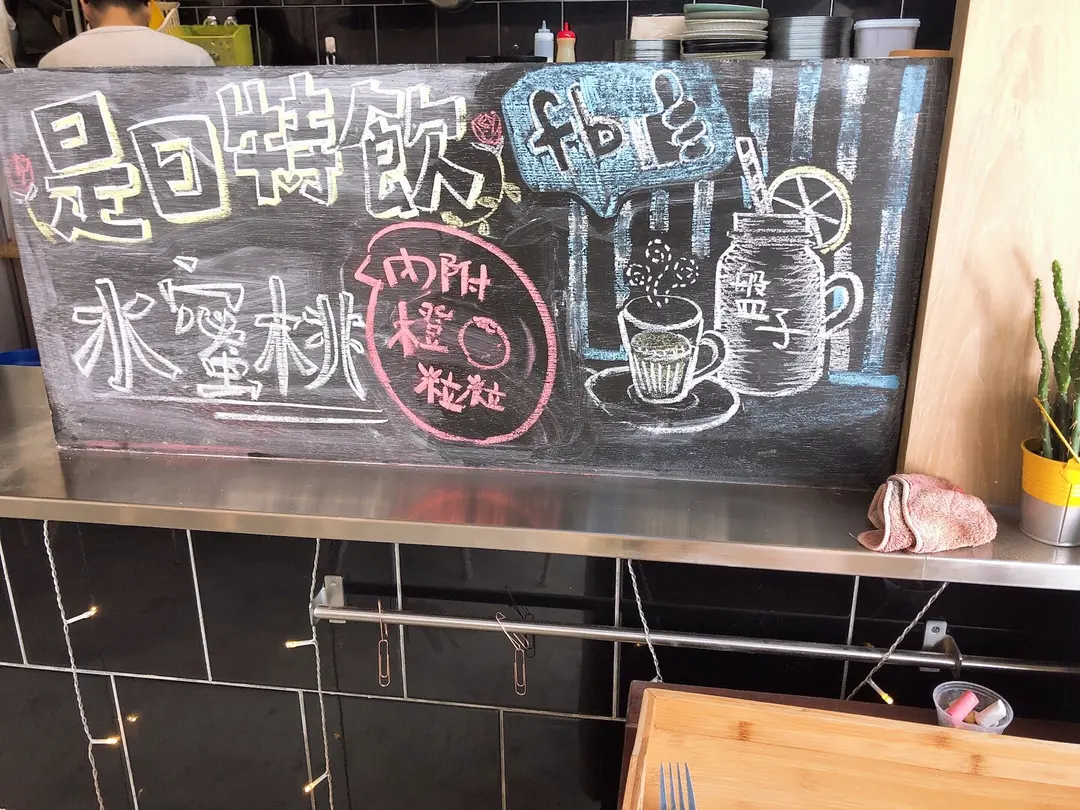 是日特飲
fb
水蜜桃
內附
橙
粒粒
盤子